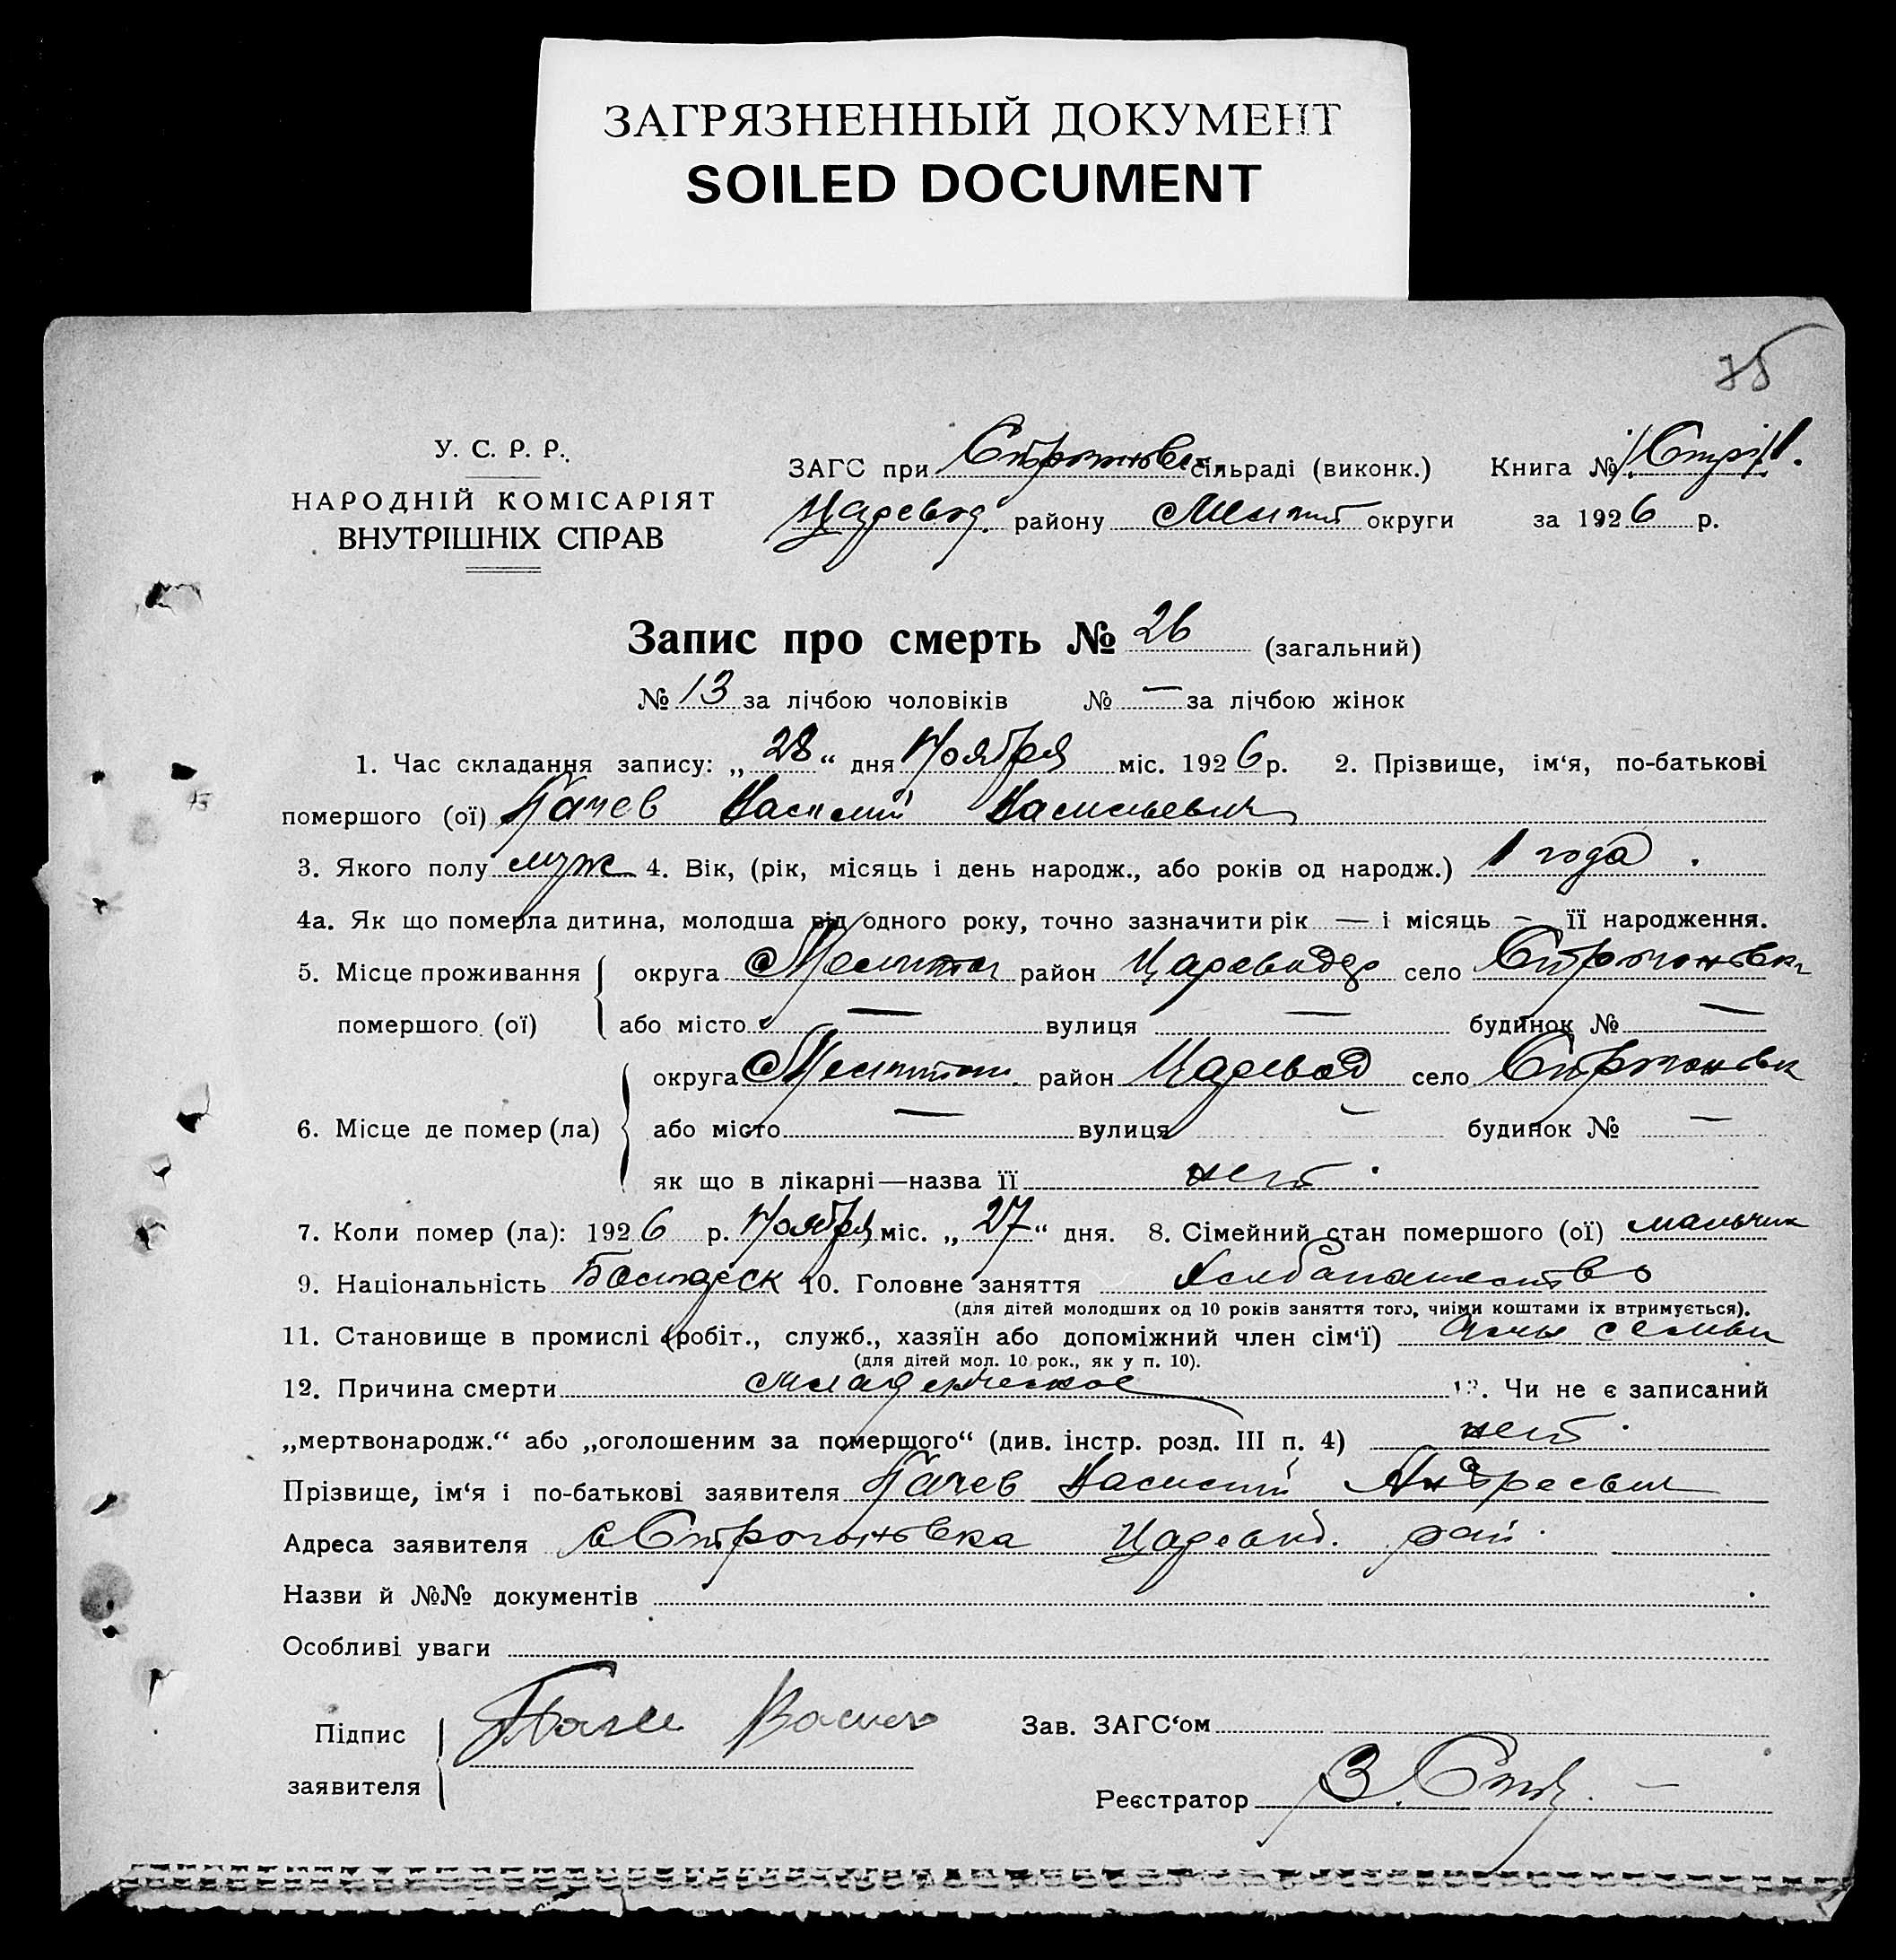 ЗАГРЯЗНЕННЫЙ ДОКУМЕНТ
SOILED DOCUMENT
У. С. Р. Р.
НАРОДНІЙ КОМІСАРІЯТ
ВНУТРІШНІХ СПРАВ
ЗАГС при сільраді (виконк.) Книга №
району округи за 1926 р.
Запис про смерть № 26 (загальний)
№ 13 за лічбою чоловіків № — за лічбою жінок
1. Час складання запису: „28“ дня Ноября міс. 1926 р. 2. Прізвище, ім‘я, по-батькові
помершого (ої) Василий Васильевич
3. Якого полу муж 4. Вік, (рік, місяць і день народж., або років од народж.) 1 года.
4а. Як що померла дитина, молодша від одного року, точно зазначити рік — і місяць — її народження.
5. Місце проживання округа район село Строгоновка
помершого (ої) або місто — вулиця — будинок № —
округа район Царевод село
6. Місце де помер (ла) або місто — вулиця — будинок № —
як що в лікарні—назва її нет.
7. Коли помер (ла): 1926 р. Ноября міс. „27“ дня. 8. Сімейний стан помершого (ої) мальчик
9. Національність 10. Головне заняття
(для дітей молодших од 10 років заняття того, чиїми коштами їх втримується).
11. Становище в промислі (робіт., служб., хазяїн або допоміжний член сім‘ї) семьи
(для дітей мол. 10 рок., як у п. 10).
12. Причина смерти младенческое 13. Чи не є записаний
„мертвонародж.“ або „оголошеним за померщого“ (див. інстр. розд. III п. 4) нет.
Прізвище, ім‘я і по-батькові заявителя Василий Андреевич
Адреса заявителя с Строгоновка рай.
Назви й №№ документів
Особливі уваги
Підпис
заявителя
Зав. ЗАГС‘ом
Реєстратор